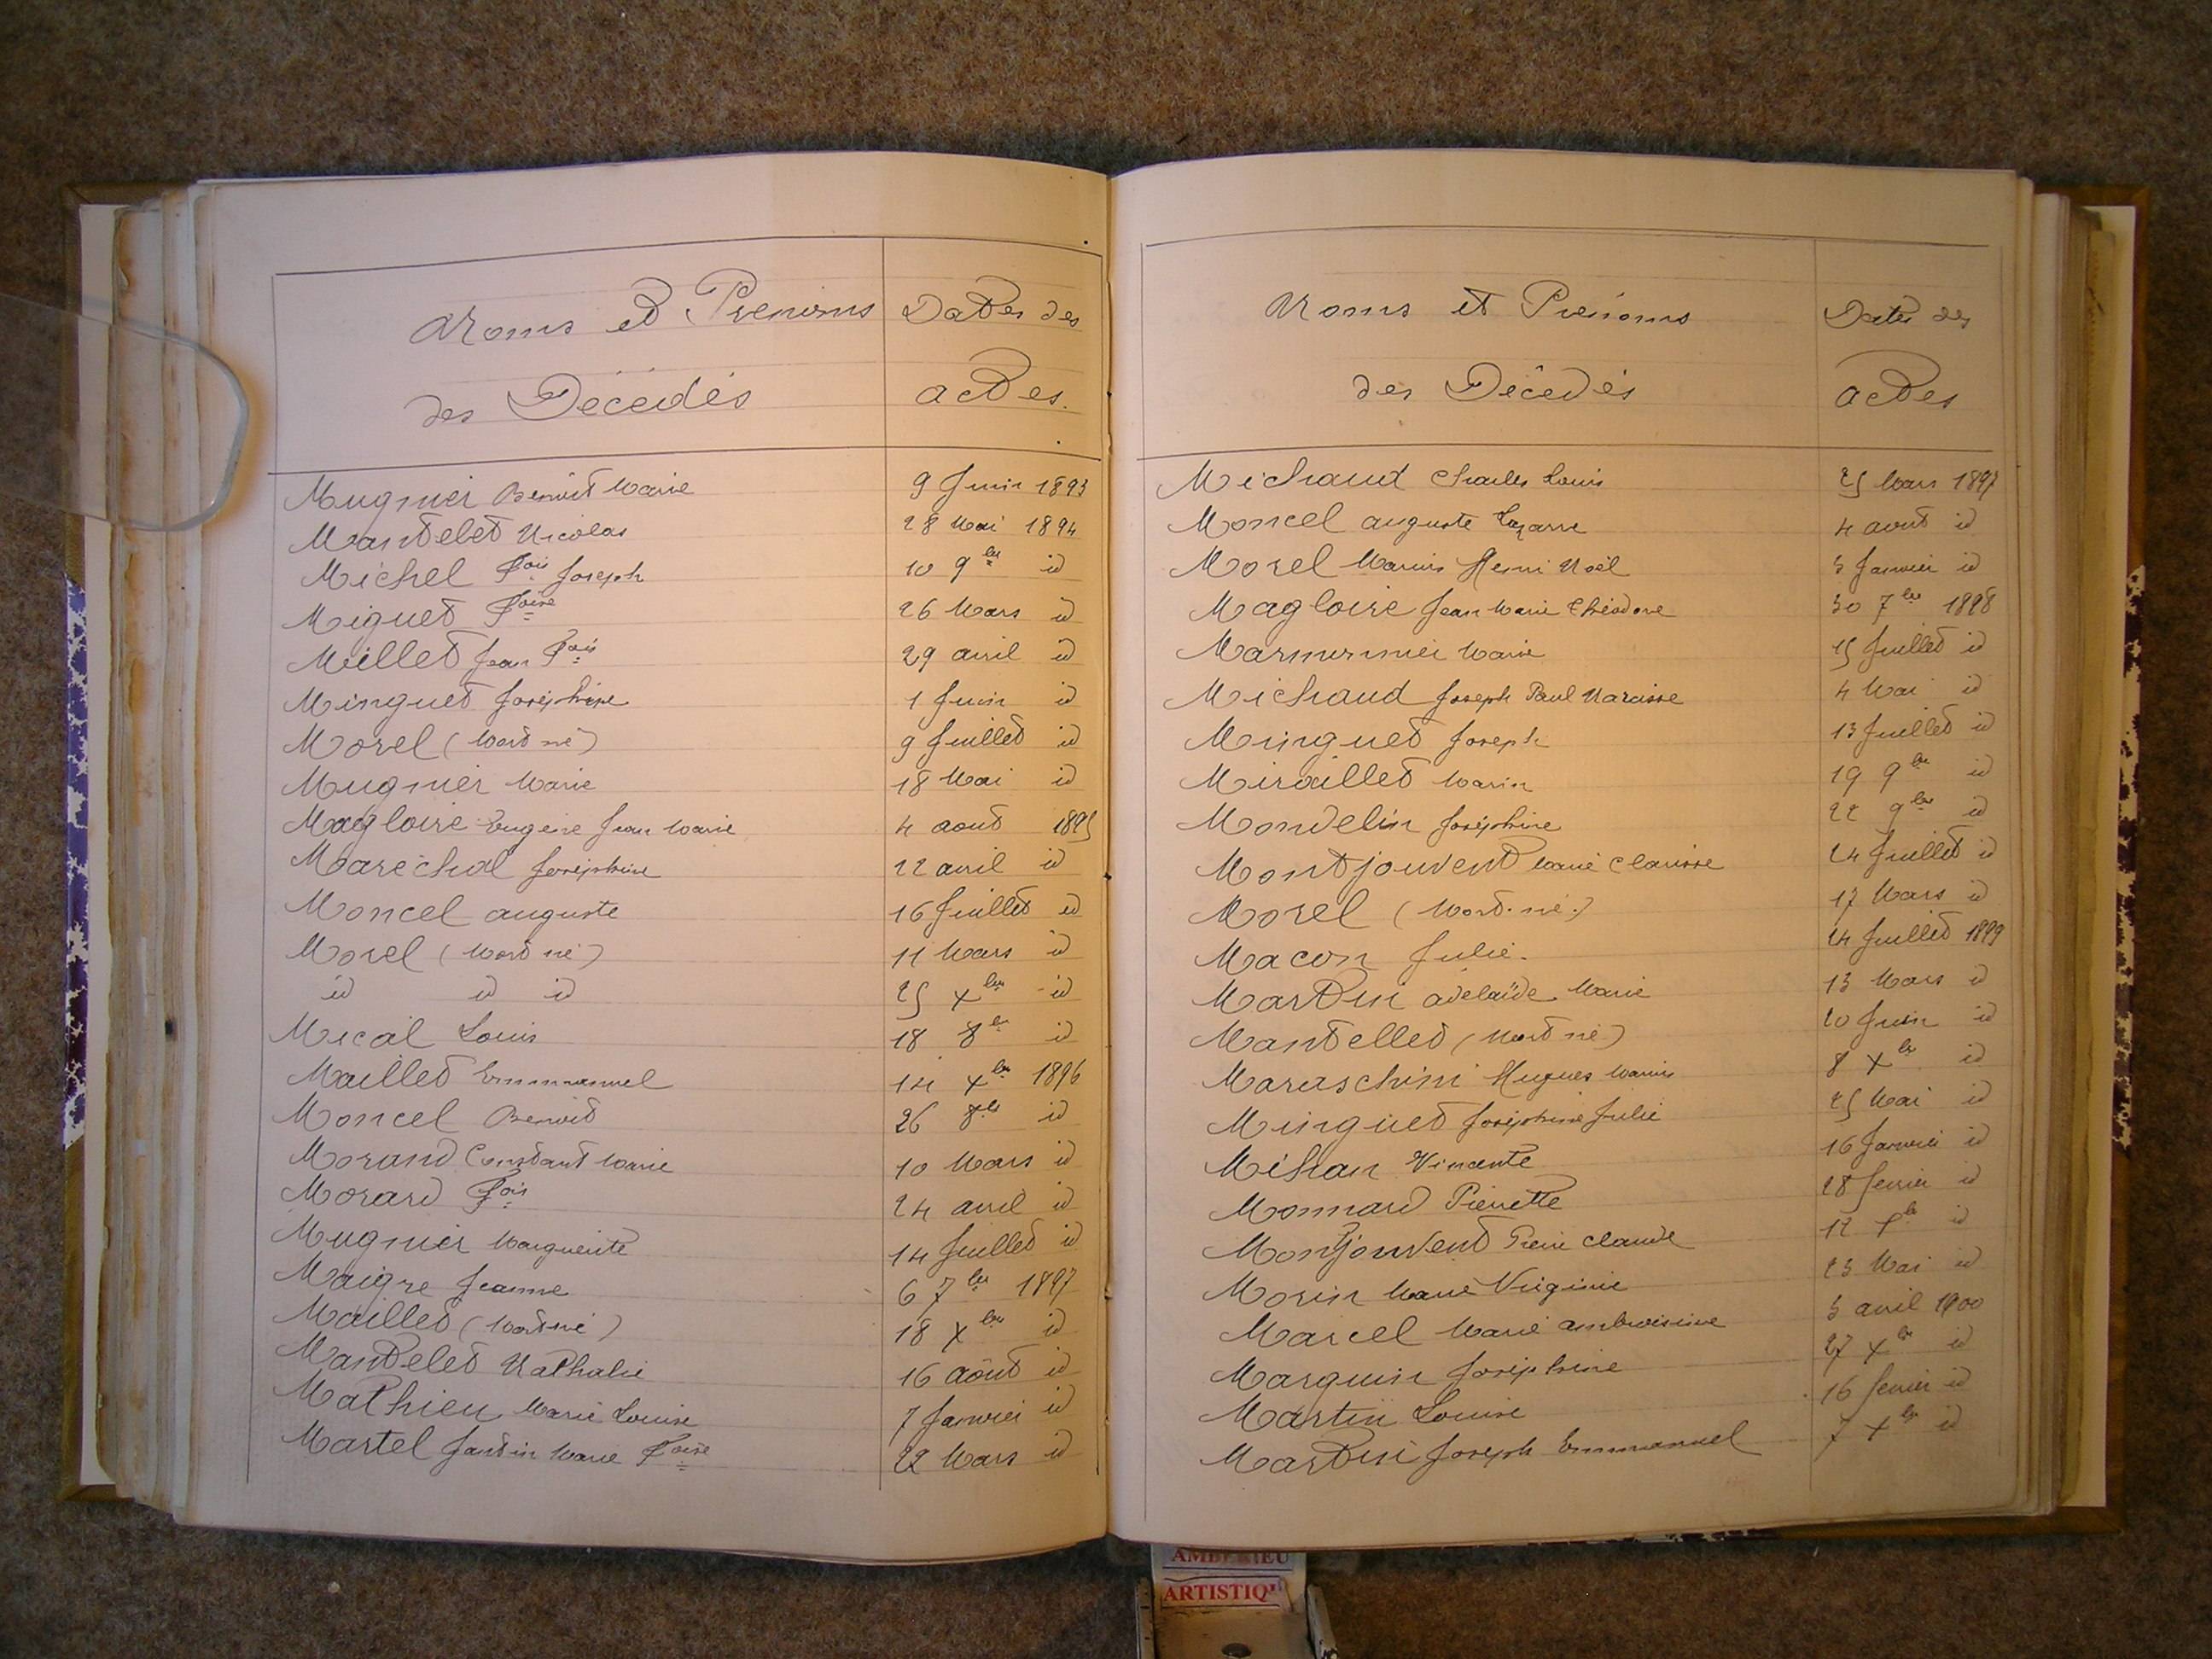 Noms et Prénoms Dates des
des Décédés actes.
Mugnier Benoit Marie 9 Juin 1893
Mantelet Nicolas 28 Mai 1894
Michel Fois Joseph 10 9bre id
Miguet Foise 26 Mars id
Millet Jean Fois 29 avril id
Minguet Joséphine 1 Juin id
Morel (Mort né) 9 Juillet id
Mugnier Marie 18 Mai id
Magloire Eugène Jean Marie 4 aout 1895
Maréchal Joséphine 22 avril id
Moncel auguste 16 Juillet id
Morel (Mort né) 11 Mars id
id id id 25 Xbre id
Micál Louis 18 8bre id
Maillet Emmanuel 14 Xbre 1896
Moncel Benoit 26 8bre id
Morand Constant Marie 10 Mars id
Morard Fois 24 avril id
Mugnier Marguerite 14 Juillet id
Maigre Jeanne 6 7bre 1897
Maillet (Mort né) 18 Xbre id
Mantelet Nathalie 16 août id
Mathieu Marie Louise 7 Janvier id
Martel Jantin Marie Foise 22 Mars id
Noms et Prénoms Dates des
des Décédés actes
Michaud Charles Louis 25 Mars 1897
Moncel auguste Lazarre 4 aout id
Morel Marius Henri Noël 5 Janvier id
Magloire Jean Marie Théodore 30 7bre 1898
Marmermier Marie 15 Juillet id
Michaud Joseph Paul Narcisse 4 Mai id
Minguet Joseph 13 Juillet id
Miraillet Marin 19 9bre id
Mondelin Joséphine 22 9bre id
Montjouvent Marie Clarisse 24 Juillet id
Morel (Mort-né.) 17 Mars id
Macon Julie. 14 Juillet 1899
Martin adelaïde Marie 13 Mars id
Mantellet (Mort né) 20 Juin id
Maraschini Hugues Marius 8 Xbre id
Minguet Joséphine Julie 25 Mai id
Mishan Vincente 16 Janvier id
Monnard Pierrette 28 fevrier id
Montjouvent Pierre Claude 12 id
Morin Marie Virginie 23 Mai id
Marcel Marie ambroisine 5 avril 1900
Marguin Joséphine 27 Xbre id
Martin Louise 16 fevrier id
Martin Joseph Emmanuel 7 Xbre id
AMBERIEU
ARTISTIQU